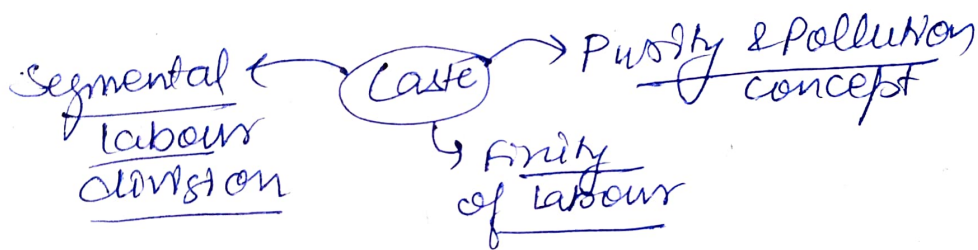 Segmental
labour
division
Caste
Purity & Pollution
concept
Fixity
of labour